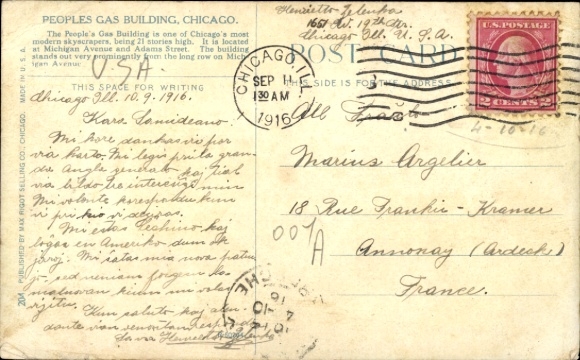 PEOPLES GAS BUILDING, CHICAGO.
The People's Gas Building is one of Chicago's most
modern skyscrapers, being 21 stories high. It is located
at Michigan Avenue and Adams Street. The building
stands out very prominently from the long row on Mich-
igan Avenue.
USA.
THIS SPACE FOR WRITING
Chicago Ill. 10.9.1916.
Kara Samideano.
Mi kore dankas vin por
via karto. Mi legis pri la gran-
da Angle generalo kaj
via bildo tre interesis min
Mi volonte korespondus kun
vi pri kio vi deziras.
Mi estas Ĉeĥino kaj
loĝas en Ameriko dum
jaroj. Mi ŝatas mia nova patru-
jo, sed neniam forges la
malnovan kiun mi
Kun saluto kaj aten-
danta vian respondo
Henrietto Zelenka
MADE IN U. S. A.
PUBLISHED BY MAX RIGOT SELLING CO., CHICAGO.
204
Henrietto Zelenka
1651 W. 19th Str.
Chicago Ill. U. S. A.
POST CARD
THIS SIDE IS FOR THE ADDRESS
CHICAGO, ILL.
SEP 11
1 30 AM
1916
2 CENTS 2
4-10-16
Marius Argelier
18 Rue Franki-Kramer
Annonay (Ardeck)
France.
007
A